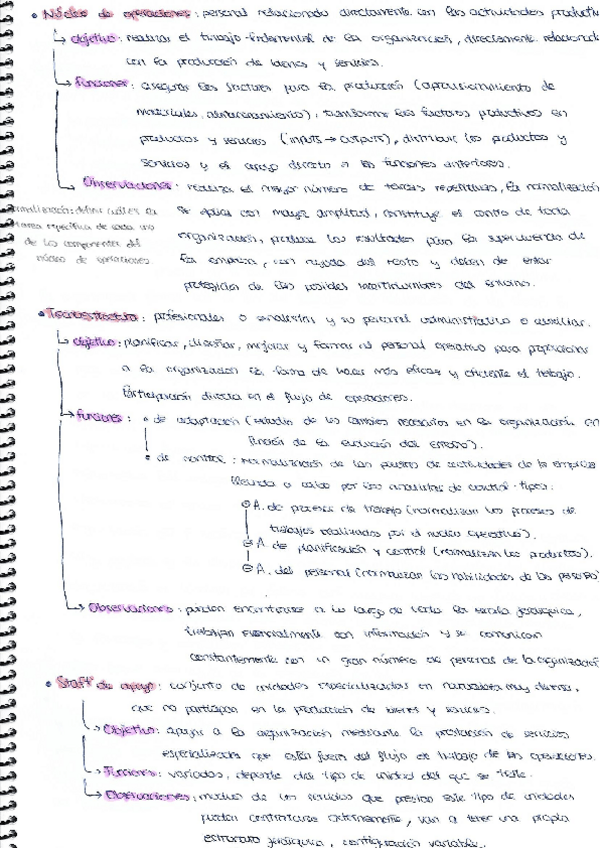 • Núcleo de operaciones: personal relacionado directamente con las actividades productiv
↳ objetivo: realizar el trabajo fundamental de la organización, directamente relacionado
con la producción de bienes y servicios.
↳ funciones: asegurar los factores para la producción (aprovisionamiento de
materiales, almacenamiento), transformar los factores productivos en
productos y servicios (inputs → outputs), distribuir los productos y
servicios y el apoyo directo a las funciones anteriores.
↳ Observaciones: realiza el mayor número de tareas repetitivas, la normalización
se aplica con mayor amplitud, constituye el centro de toda
organización, produce los resultados para la supervivencia de
la empresa, con ayuda del resto y deben de estar
protegidas de las posibles incertidumbres del entorno.
normalización: definir cuál es la
tarea específica de cada uno
de los componentes del
núcleo de operaciones
• Tecnoestructura: profesionales o analistas y su personal administrativo o auxiliar.
↳ objetivo: planificar, diseñar, mejorar y formar al personal operativo para proporcionar
a la organización la forma de hacer más eficaz y eficiente el trabajo.
Participación directa en el flujo de operaciones.
↳ funciones: • de adaptación (estudio de los cambios necesarios en la organización en
función de la evolución del entorno).
• de control: normalización de los puestos de actividades de la empresa
llevada a cabo por los analistas de control. tipos:
A. de procesos de trabajo (normalizan los procesos de
trabajos realizados por el núcleo operativo).
A. de planificación y control (normalizan los productos).
A. del personal (normalizan las habilidades de las personas)
↳ Observaciones: pueden encontrarse a lo largo de toda la escala jerárquica,
trabajan esencialmente con información y se comunican
constantemente con un gran número de personas de la organización
• Staff de apoyo: conjunto de unidades especializadas en naturaleza muy diversa,
que no participan en la producción de bienes y servicios.
↳ Objetivo: apoyar a la organización mediante la prestación de servicios
especializados que están fuera del flujo de trabajo de las operaciones.
↳ Funciones: variadas, depende del tipo de unidad del que se trate.
↳ Observaciones: muchos de los servicios que prestan este tipo de unidades
pueden contratarse externamente, van a tener una propia
estructura jerárquica, configuración variable.